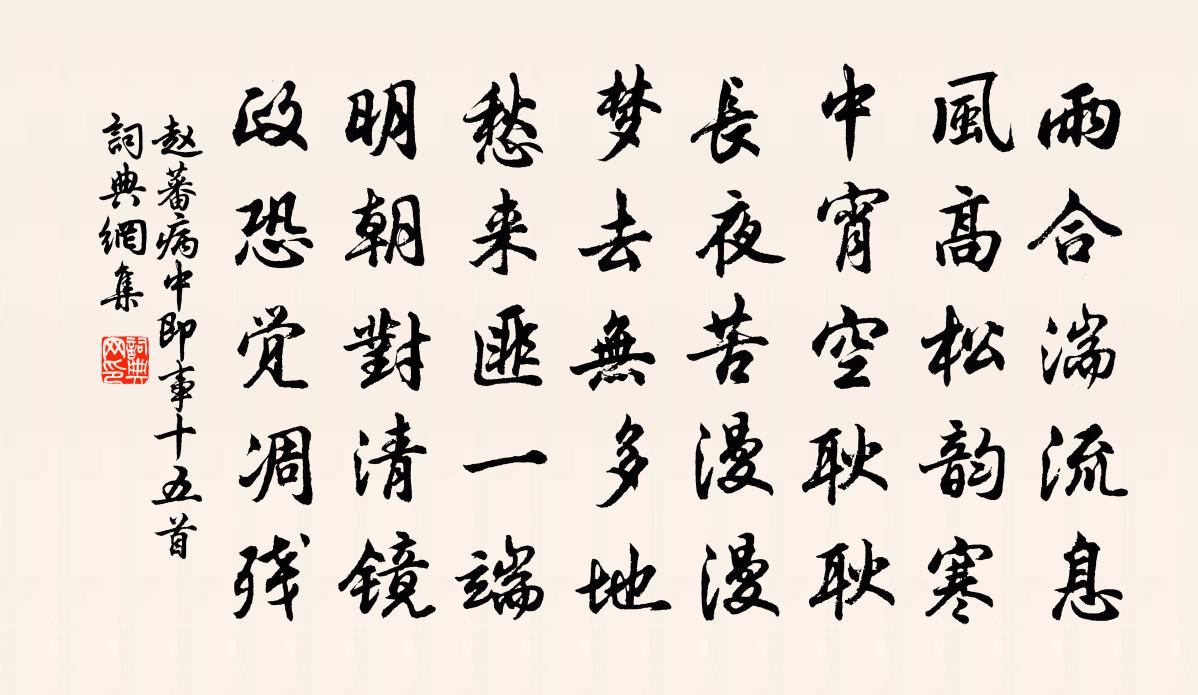 雨合湍流息
風高松韵寒
中宵空耿耿
長夜苦漫漫
梦去無多地
愁来匪一端
明朝對清镜
政恐觉凋残
赵蕃病中即事十五首
詞典網集
詞典网印